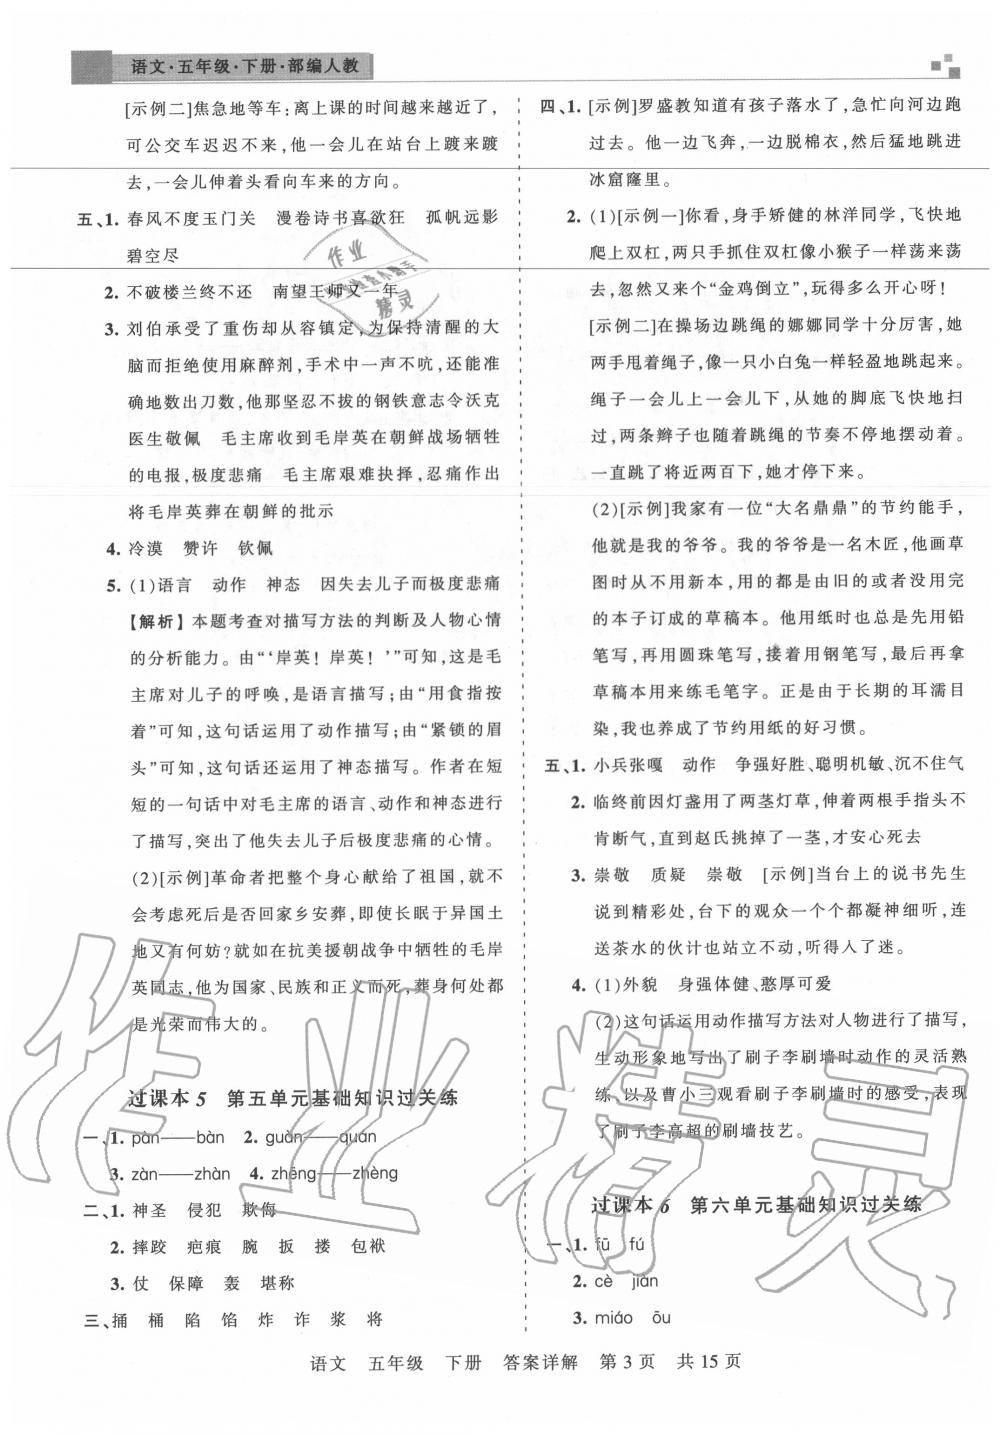 语文·五年级·下册·部编人教
[示例二]焦急地等车:离上课的时间越来越近了,
可公交车迟迟不来,他一会儿在站台上踱来踱
去,一会儿伸着头看向车来的方向。
五、1. 春风不度玉门关　漫卷诗书喜欲狂　孤帆远影
碧空尽
2. 不破楼兰终不还　南望王师又一年
3. 刘伯承受了重伤却从容镇定,为保持清醒的大
脑而拒绝使用麻醉剂,手术中一声不吭,还能准
确地数出刀数,他那坚忍不拔的钢铁意志令沃克
医生敬佩　毛主席收到毛岸英在朝鲜战场牺牲
的电报,极度悲痛　毛主席艰难抉择,忍痛作出
将毛岸英葬在朝鲜的批示
4. 冷漠　赞许　钦佩
5. (1)语言　动作　神态　因失去儿子而极度悲痛
【解析】本题考查对描写方法的判断及人物心情
的分析能力。由“‘岸英！岸英！’”可知,这是毛
主席对儿子的呼唤,是语言描写;由“用食指按
着”可知,这句话运用了动作描写;由“紧锁的眉
头”可知,这句话还运用了神态描写。作者在短
短的一句话中对毛主席的语言、动作和神态进行
了描写,突出了他失去儿子后极度悲痛的心情。
(2)[示例]革命者把整个身心献给了祖国,就不
会考虑死后是否回家乡安葬,即使长眠于异国土
地又有何妨?就如在抗美援朝战争中牺牲的毛岸
英同志,他为国家、民族和正义而死,葬身何处都
是光荣而伟大的。
过课本 5　第五单元基础知识过关练
一、1. pàn——bàn　2. guàn——quán
3. zàn——zhàn　4. zhēng——zhèng
二、1. 神圣　侵犯　欺侮
2. 摔跤　疤痕　腕　扳　搂　包袱
3. 仗　保障　轰　堪称
三、捅　桶　陷　馅　炸　诈　浆　将
四、1. [示例]罗盛教知道有孩子落水了,急忙向河边跑
过去。他一边飞奔,一边脱棉衣,然后猛地跳进
冰窟窿里。
2. (1)[示例一]你看,身手矫健的林洋同学,飞快地
爬上双杠,两只手抓住双杠像小猴子一样荡来荡
去,忽然又来个“金鸡倒立”,玩得多么开心呀!
[示例二]在操场边跳绳的娜娜同学十分厉害,她
两手甩着绳子,像一只小白兔一样轻盈地跳起来。
绳子一会儿上一会儿下,从她的脚底飞快地扫
过,两条辫子也随着跳绳的节奏不停地摆动着。
一直跳了将近两百下,她才停下来。
(2)[示例]我家有一位“大名鼎鼎”的节约能手,
他就是我的爷爷。我的爷爷是一名木匠,他画草
图时从不用新本,用的都是由旧的或者没用完
的本子订成的草稿本。他用纸时也总是先用铅
笔写,再用圆珠笔写,接着用钢笔写,最后再用
草稿本用来练毛笔字。正是由于长期的耳濡目
染,我也养成了节约用纸的好习惯。
五、1. 小兵张嘎　动作　争强好胜、聪明机敏、沉不住气
2. 临终前因灯盏用了两茎灯草,伸着两根手指头不
肯断气,直到赵氏挑掉了一茎,才安心死去
3. 崇敬　质疑　崇敬　[示例]当台上的说书先生
说到精彩处,台下的观众一个个都凝神细听,连
送茶水的伙计也站立不动,听得人了迷。
4. (1)外貌　身强体健、憨厚可爱
(2)这句话运用动作描写方法对人物进行了描写,
生动形象地写出了刷子李刷墙时动作的灵活熟
练,以及曹小三观看刷子李刷墙时的感受,表现
了刷子李高超的刷墙技艺。
过课本 6　第六单元基础知识过关练
一、1. fū　fú
2. cè　jiān
3. miáo　ōu
语文　五年级　下册　答案详解　第 3 页　共 15 页
作业精灵
作业
精灵